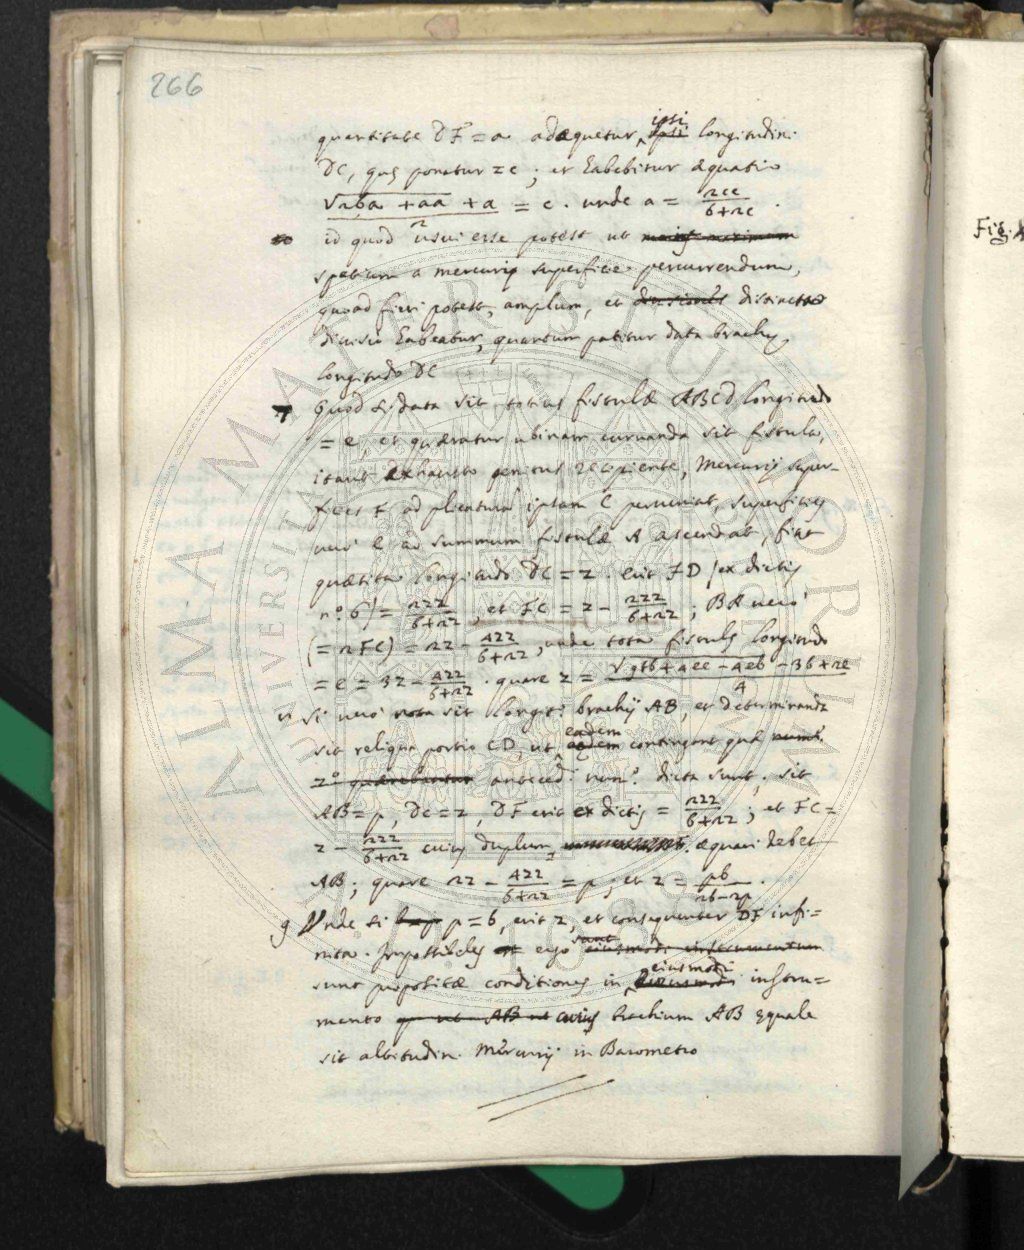 266
quantitate DF = a adæquetur ipsi longitudini
DC, quę ponatur = c ; et habebitur æquatio
√2ba + aa + a = c . unde a = 2cc / b+2c .
2
id quod usui esse potest ut
spatium a mercurij superficie percurrendum,
quoad fieri potest, amplum, et divisiones distinctæ
divisio habeatur, quantum patitur data brachij
longitudo DC
7 Quod si data sit totius fistulæ ABCD longitudo
= e, et quæratur ubinam curvanda sit fistula,
itaut exhausto penitus recipiente, Mercurij super-
ficies F ad plicaturā ipsam C perveniat, superficies
vero E ad summum fistulæ A ascendat, fiat
quæsita longitudo DC = z . erit FD (ex dictis
n.º 6) = 2zz / b+2z , et FC = z - 2zz / b+2z ; BA vero
(= 2FC) = 2z - 4zz / b+2z , unde tota fistulę longitudo
= e = 3z - 4zz / b+2z . quare z = √9bb+4ee-4eb - 3b+2e / 4
Si vero nota sit longit. brachij AB, et determinanda
sit reliqua portio CD, ut eadem contingant quæ
antecedi. num.º dicta sunt, sit
AB = p, DC = z, DF erit ex dictis = 2zz / b+2z ; et FC =
z - 2zz / b+2z cuius duplum æquari debet
AB ; quare 2z - 4zz / b+2z = p, et z = pb / 2b-2p .
9 Unde si p = b, erit z, et consequenter DF infi=
nita . Impossibiles ergo sunt eiusmodi instrumentum
sunt propositæ conditiones in eiusmodi instru=
mento cuius brachium AB æquale
sit altitudini Mercurij in Barometro
Fig.